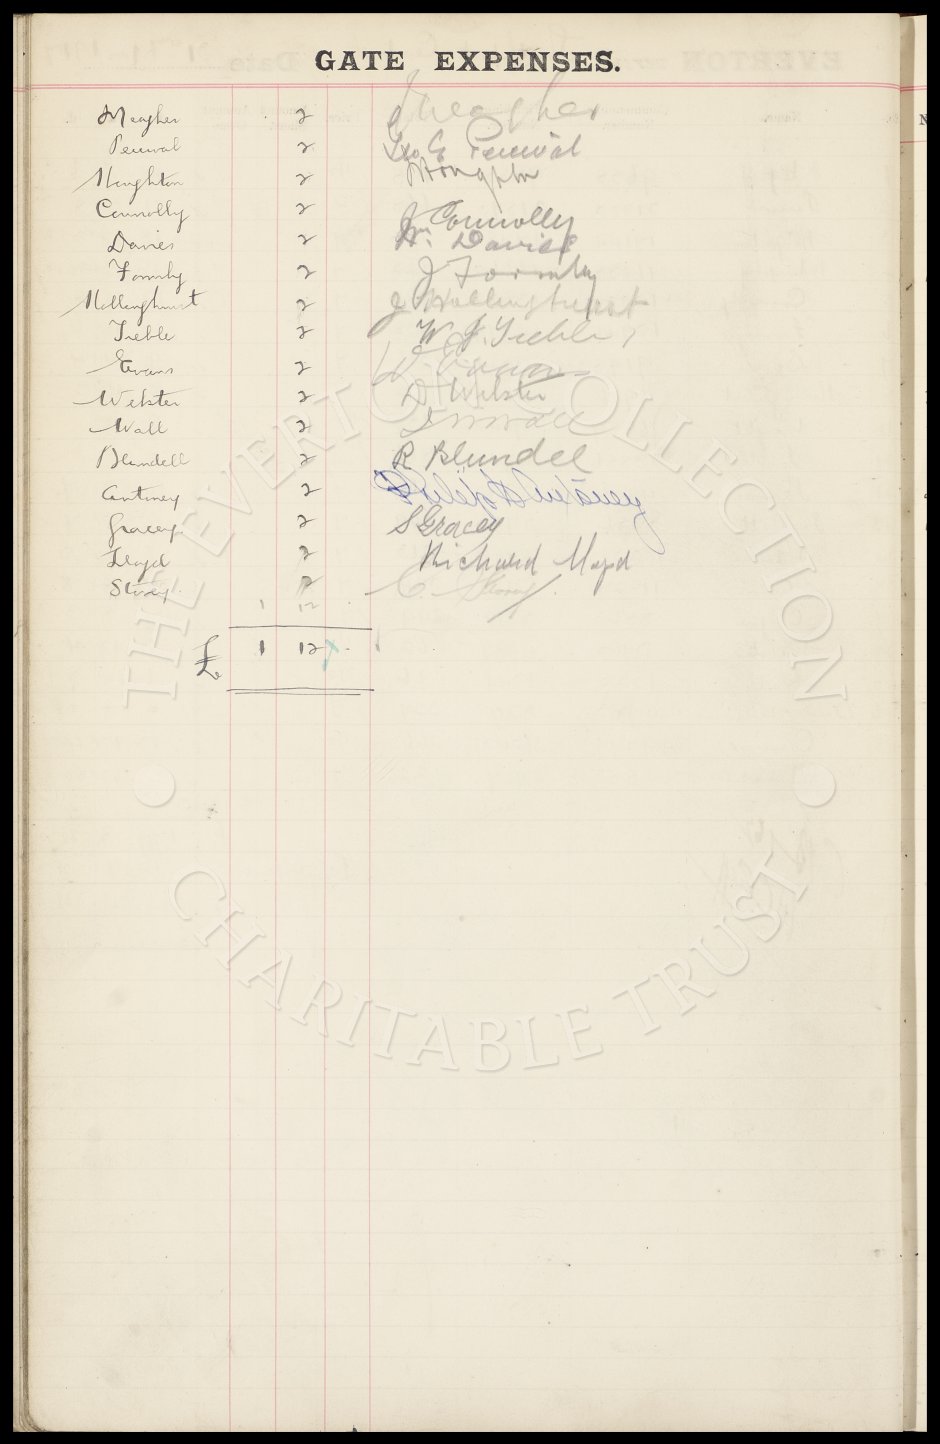 GATE EXPENSES.
Meagher 2 Meagher
Percival 2 Geo G Percival
Houghton 2 Houghton
Connolly 2 J Connolly
Davies 2 Wm. Davies
Formby 2 J Formby
Hollinghurst 2 J Hollinghurst
Treble 2 W. J. Treble
Evans 2 Evans
Webster 2 D Webster
Wall 2 Wall
Blundell 2 R Blundell
Cantiney 2
Gracey 2 S Gracey
Lloyd 2 Richard Lloyd
Storey 2 C. Storey
1 12
£ 1 12
THE EVERTON COLLECTION
CHARITABLE TRUST